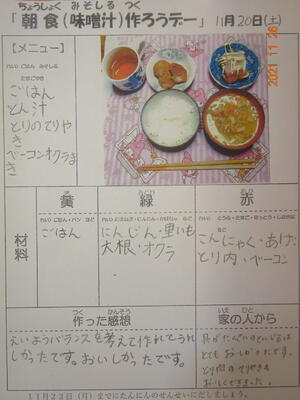 ちょうしょく みそしる つく
「朝食(味噌汁)作ろうデー」 11月20日(土)
2021 11 26
【メニュー】
れい) ごはん みそしる
たまごやき
ごはん
とん汁
とりのてりや
き
ベーコンオクラまき
黄
みどり
緑
あか
赤
材料
ごはん
にんじん・里いも
大根・オクラ
こんにゃく・あげ
とり肉・ベーコン
つく かんそう
作った感想
いえ ひと
家の人から
えいようバランスを考えて作れてうれ
しかったです。おいしかったです。
具がたくさん
とてもおいしかったです。
とり肉のてりやきも
おいしくできました。
11月22日(月)までにたんにんのせんせいにだしましょう。